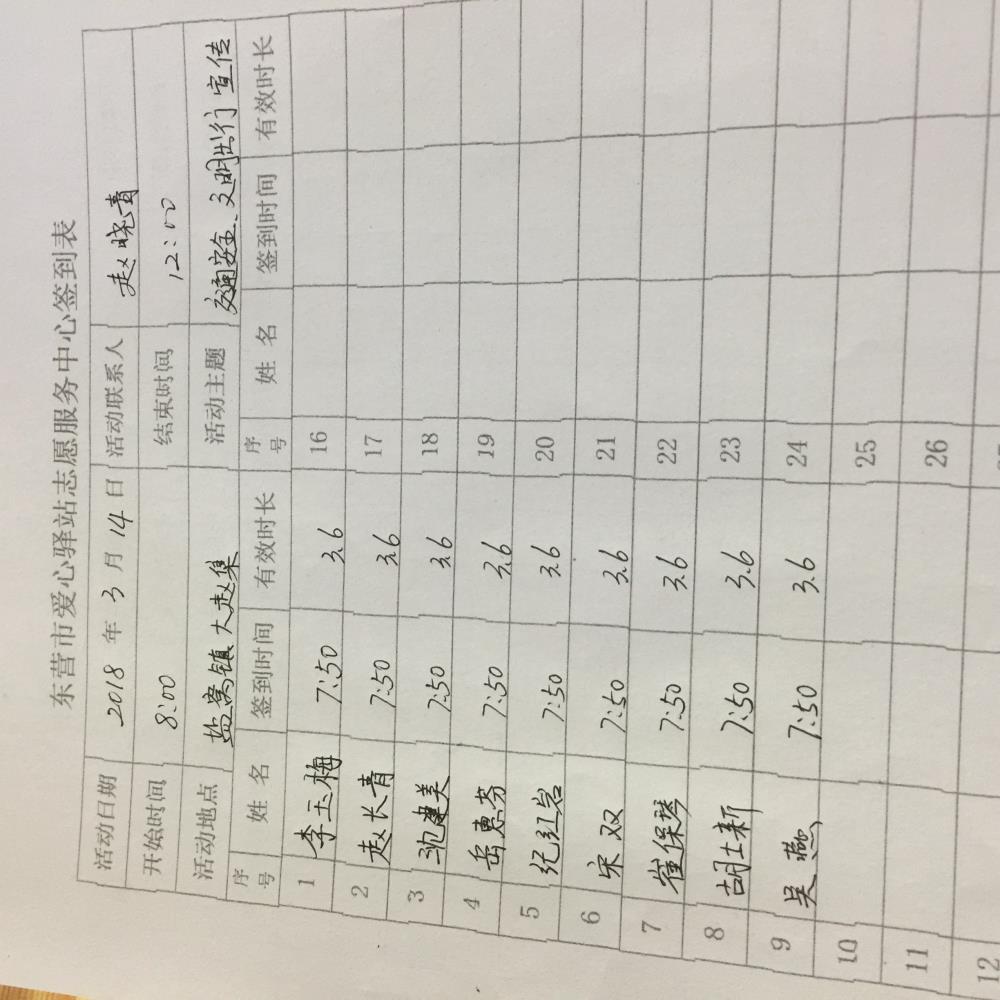 东营市爱心驿站志愿服务中心签到表
活动日期 2018 年 3 月 14 日 活动联系人 赵晓青
开始时间 8:00 结束时间 12:00
活动地点 盐窝镇大赵集 活动主题 交通安全、文明出行宣传
序号 姓名 签到时间 有效时长 序号 姓名 签到时间 有效时长
1 李玉梅 7:50 3.6 16
2 赵长青 7:50 3.6 17
3 建美 7:50 3.6 18
4 岳惠芬 7:50 3.6 19
5 纪红岩 7:50 3.6 20
6 宋双 7:50 3.6 21
7 崔保琴 7:50 3.6 22
8 胡士新 7:50 3.6 23
9 吴燕 7:50 3.6 24
10 25
11 26
12